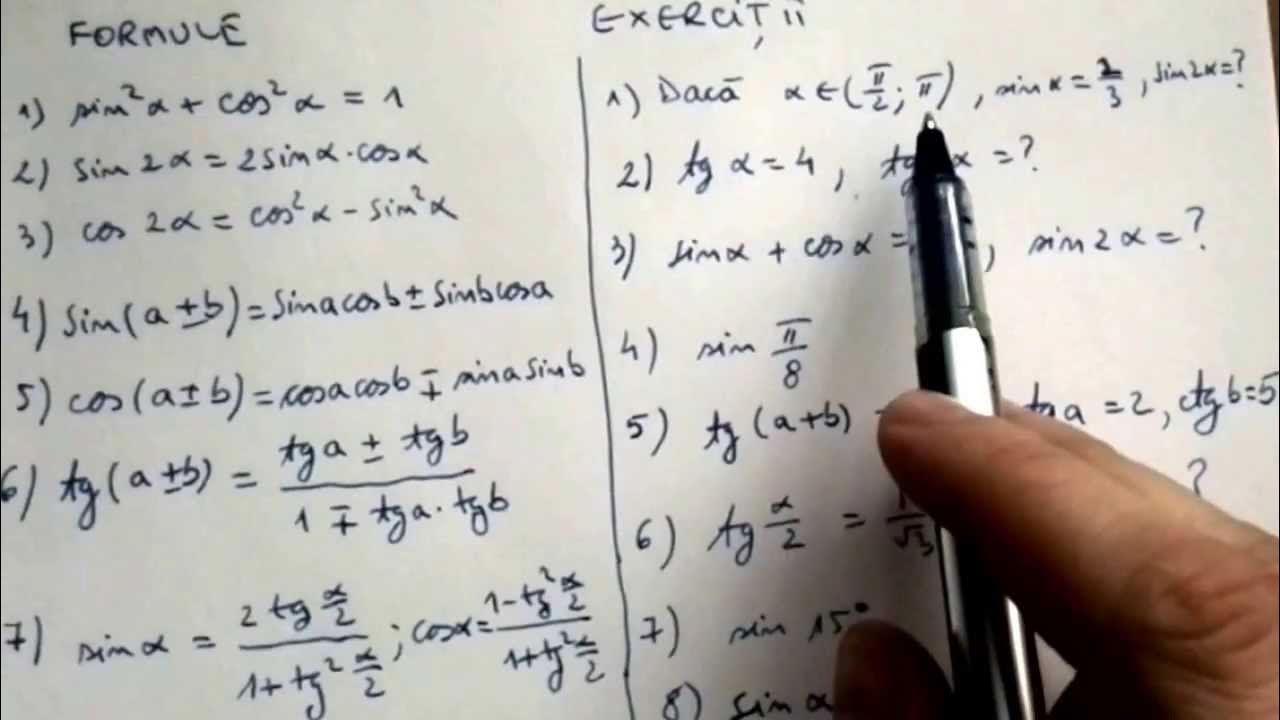 FORMULE
1) sin²α + cos²α = 1
2) sin 2α = 2sinα·cosα
3) cos 2α = cos²α - sin²α
4) sin(a±b) = sinacosb ± sinbcosa
5) cos(a±b) = cosacosb ∓ sinasinb
6) tg(a±b) = (tga ± tgb)/(1 ∓ tga·tgb)
7) sinα = (2tg α/2)/(1+tg² α/2) ; cosα = (1-tg² α/2)/(1+tg² α/2)
EXERCIȚII
1) Dacă α∈(π/2; π), sinα = 2/3, sin2α=?
2) tgα = 4, tg α = ?
3) sinα + cosα = , sin2α = ?
4) sin π/8
5) tg(a+b) tga = 2, ctgb=5
?
6) tg α/2 = 1/√3
7) sin 15°
8) sin α